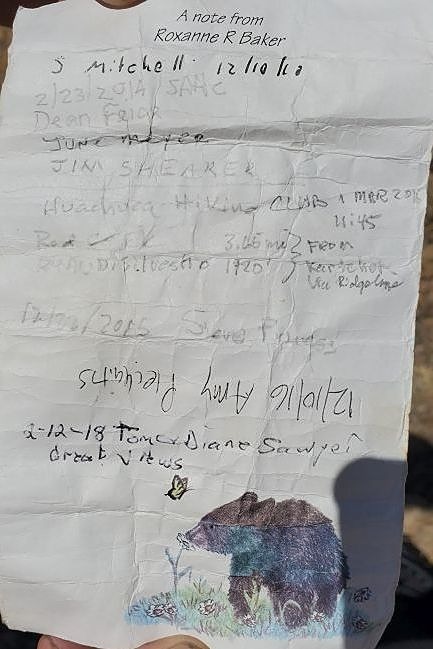 A note from
Roxanne R Baker
S Mitchell 12/10/10
2/23/2014 SAHC
Dean
June Meyer
JIM SHEARER
Huachuca Hiking CLUB 1 MAR
11:45
3.65 mi } FROM
1920' }
Via Ridgeline
12/22/2015 Steve
12/10/16 Amy
2-12-18 Tom & Diane Sawyer
Great Views